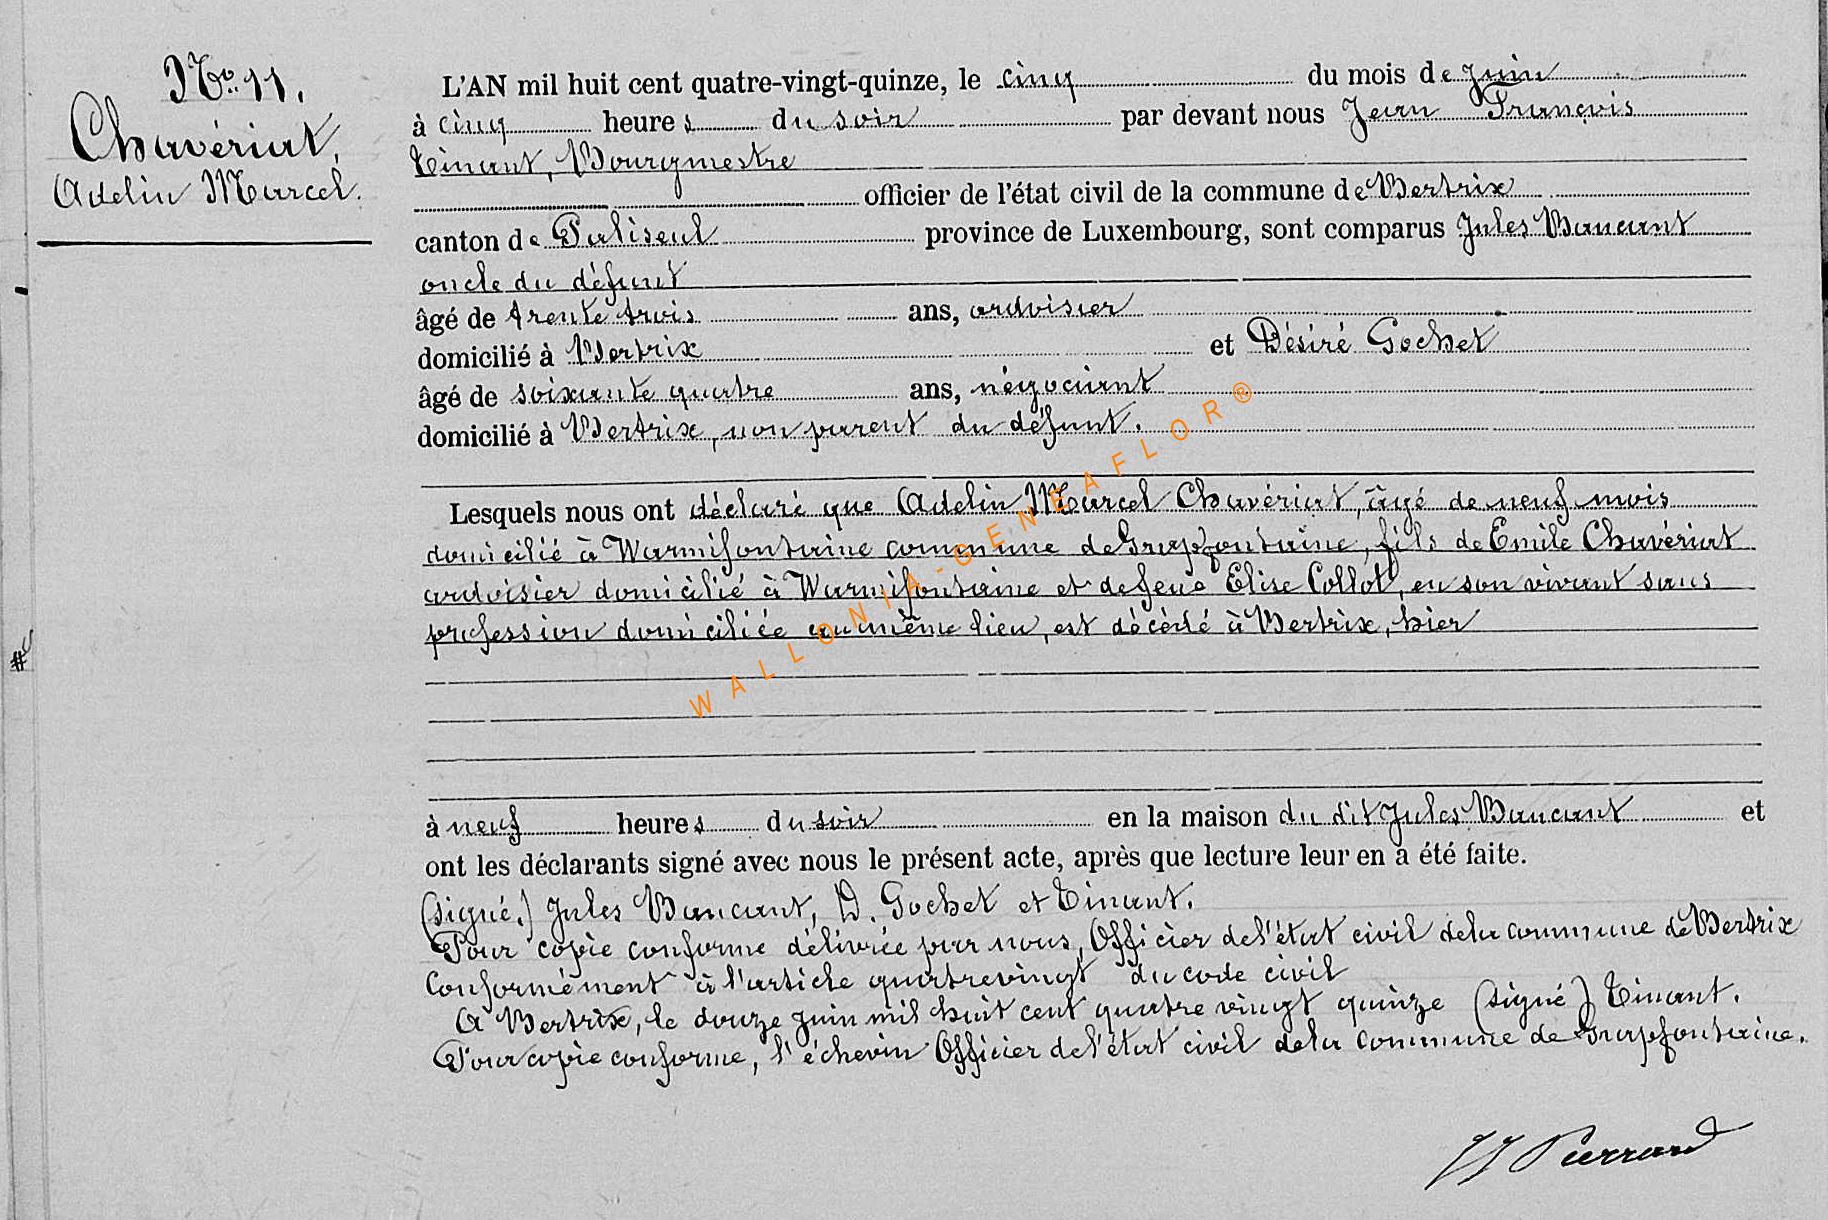 No. 11.
Chavériat,
Adelin Marcel.
L'AN mil huit cent quatre-vingt-quinze, le cinq du mois de juin
à cinq heures du soir par devant nous Jean François
Tinant, Bourgmestre
officier de l'état civil de la commune de Bertrix
canton de Paliseul province de Luxembourg, sont comparus Jules Bancant
oncle du défunt
âgé de trente trois ans, ardoisier
domicilié à Bertrix et Désiré Gochet
âgé de soixante quatre ans, négociant
domicilié à Bertrix, non parent du défunt.
Lesquels nous ont déclaré que Adelin Marcel Chavériat, âgé de neuf mois
domicilié à Warmifontaine commune de Grapfontaine, fils de Emile Chavériat
ardoisier domicilié à Warmifontaine et de feue Elise Collot, en son vivant sans
profession domiciliée au même lieu, est décédé à Bertrix, hier
à neuf heures du soir en la maison du dit Jules Bancant et
ont les déclarants signé avec nous le présent acte, après que lecture leur en a été faite.
(signé.) Jules Bancant, D. Gochet et Tinant.
Pour copie conforme délivrée par nous, Officier de l'état civil de la commune de Bertrix
Conformément à l'article quatrevingt du code civil
A Bertrix, le douze juin mil huit cent quatre vingt quinze (signé) Tinant.
Pour copie conforme, l'échevin Officier de l'état civil de la commune de Grapfontaine.
JJ Pierrard
WALLONIA-GENEAFLOR®